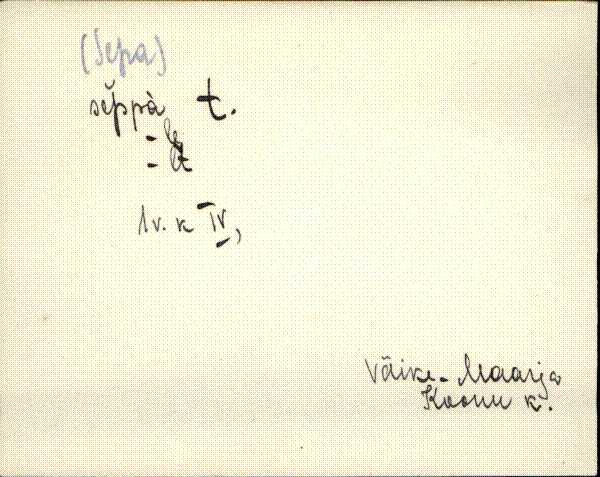 (Sepa)
sĕppà t.
-le
-lt
1 v. k IV,
Väike-Maarja
Koonu k.